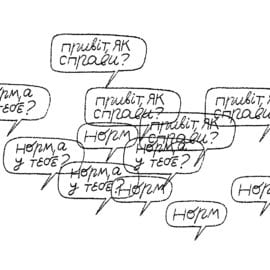 привіт, як
справи?
норм, а
тебе?
привіт, як
справи?
привіт, як
справи?
норм
привіт, як
справи?
норм, а
у тебе?
норм, а
у тебе?
норм, а
у тебе?
норм
норм
норм